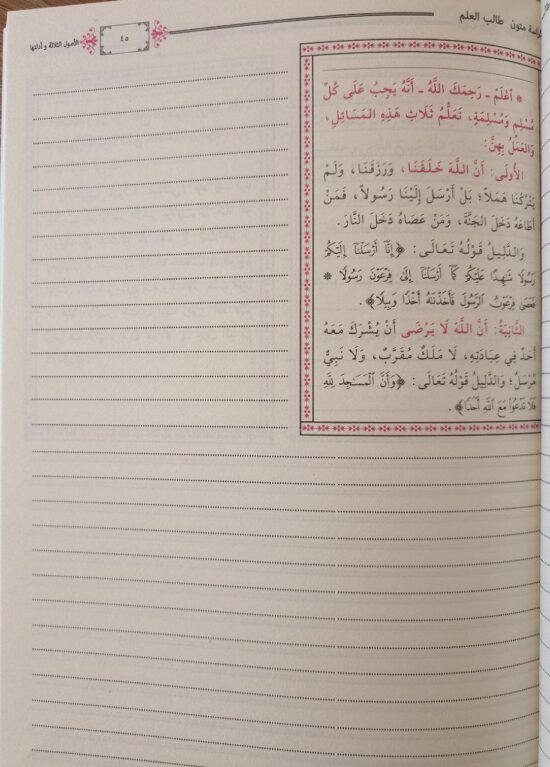 كراسة متون طالب العلم
٤٥
الأصول الثلاثة و أدلتها
* اعْلَمْ - رَحِمَكَ اللَّهُ - أَنَّهُ يَجِبُ عَلَى كُلِّ
مُسْلِمٍ وَمُسْلِمَةٍ، تَعَلُّمُ ثَلَاثِ هَذِهِ المَسَائِلِ،
وَالعَمَلُ بِهِنَّ:
الأُولَى: أَنَّ اللَّهَ خَلَقَنَا، وَرَزَقَنَا، وَلَمْ
يَتْرُكْنَا هَمَلاً؛ بَلْ أَرْسَلَ إِلَيْنَا رَسُولاً، فَمَنْ
أَطَاعَهُ دَخَلَ الجَنَّةَ، وَمَنْ عَصَاهُ دَخَلَ النَّارَ.
وَالدَّلِيلُ قَوْلُهُ تَعَالَى: ﴿إِنَّآ أَرْسَلْنَآ إِلَيْكُمْ
رَسُولًا شَٰهِدًا عَلَيْكُمْ كَمَآ أَرْسَلْنَآ إِلَىٰ فِرْعَوْنَ رَسُولًا *
فَعَصَىٰ فِرْعَوْنُ ٱلرَّسُولَ فَأَخَذْنَٰهُ أَخْذًا وَبِيلًا﴾.
الثَّانِيَةُ: أَنَّ اللَّهَ لَا يَرْضَى أَنْ يُشْرَكَ مَعَهُ
أَحَدٌ فِي عِبَادَتِهِ، لَا مَلَكٌ مُقَرَّبٌ، وَلَا نَبِيٌّ
مُرْسَلٌ؛ وَالدَّلِيلُ قَوْلُهُ تَعَالَى: ﴿وَأَنَّ ٱلْمَسَٰجِدَ لِلَّهِ
فَلَا تَدْعُوا۟ مَعَ ٱللَّهِ أَحَدًا﴾.